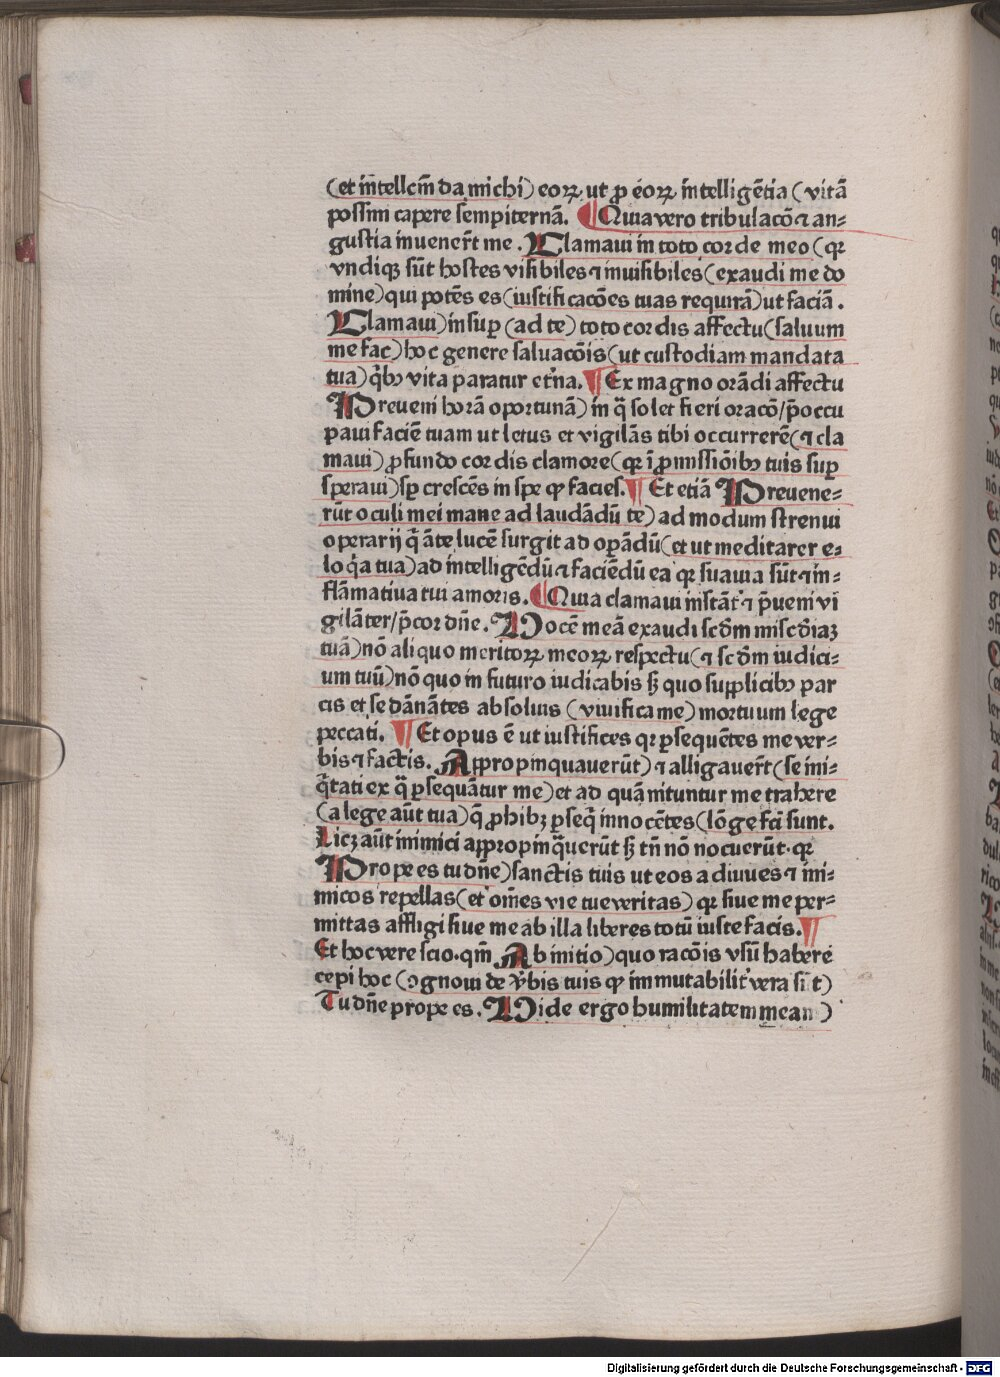 (et intellcm̄ da michi) eoꝝ ut ꝓ eoꝝ intelligētia (vitā
possim capere sempiternā. ¶ Quia vero tribulacō ⁊ an⸗
gustia inuenerūt me. Clamaui in toto corde meo (qꝛ
vndiqꝫ sūt hostes visibiles ⁊ inuisibiles (exaudi me do
mine) qui potēs es (iustificacōes tuas requirā) ut faciā.
Clamaui) insuꝑ (ad te) toto cordis affectu (saluum
me fac) hoc genere saluacōis (ut custodiam mandata
tua) q̇bꝰ vita paratur et̕na. ¶ Ex magno orādi affectu
Preueni horā oportunā) in q̄ solet fieri oracō/p̄occu
paui faciē tuam ut letus et vigilās tibi occurrerē (⁊ cla
maui) ꝓfundo cordis clamore (qꝛ ī ꝓmissiōibꝰ tuis suꝑ
speraui) sꝑ crescēs in spe ꝙ facies. ¶ Et etiā Preuene⸗
rūt oculi mei mane ad laudādū te) ad modum strenui
operarij q̄ āte lucē surgit ad oꝑādū (et ut meditarer e⸗
loq̇a tua) ad intelligēdū ⁊ faciēdū ea qꝛ suauia sūt ⁊ in⸗
flāmatiua tui amoris. ¶ Quia clamaui instāt̕ ⁊ p̄ueni vi
gilāter/p̄cor dn̄e. Uocē meā exaudi scd̄m misc̄diaꝫ
tuā) nō aliquo meritoꝝ meoꝝ respectu (⁊ scd̄m iudici⸗
um tuū) nō quo in futuro iudicabis sꝫ quo supplicibꝰ par
cis et se dānātes absoluis (viuifica me) mortuum lege
peccati. ¶ Et opus ē ut iustifices qꝛ ꝑsequētes me ver⸗
bis ⁊ factis. Appropinquauerūt) ⁊ alligauer̄t (se ini⸗
q̇tati ex q̄ ꝑsequātur me) et ad quā nituntur me trahere
(a lege aūt tua) q̄ ꝓhibꝫ ꝑseq̇ innocētes (lōge fc̄i sunt.
Licꝫ aūt inimici appropinq̄uerūt sꝫ tn̄ nō nocuerūt. qꝛ
Prope es tu dn̄e) sanctis tuis ut eos adiuues ⁊ ini⸗
micos repellas (et om̄es vie tue veritas) qꝛ siue me per⸗
mittas affligi siue me ab illa liberes totū iuste facis. ¶
Et hoc vere scio. qm̄ Ab initio) quo racōis vsū habere
cepi hoc (ꝯgnoui de v̕bis tuis ꝙ immutabilit̕ vera sūt)
Tu dn̄e prope es. Uide ergo humilitatem meam)
Digitalisierung gefördert durch die Deutsche Forschungsgemeinschaft - DFG